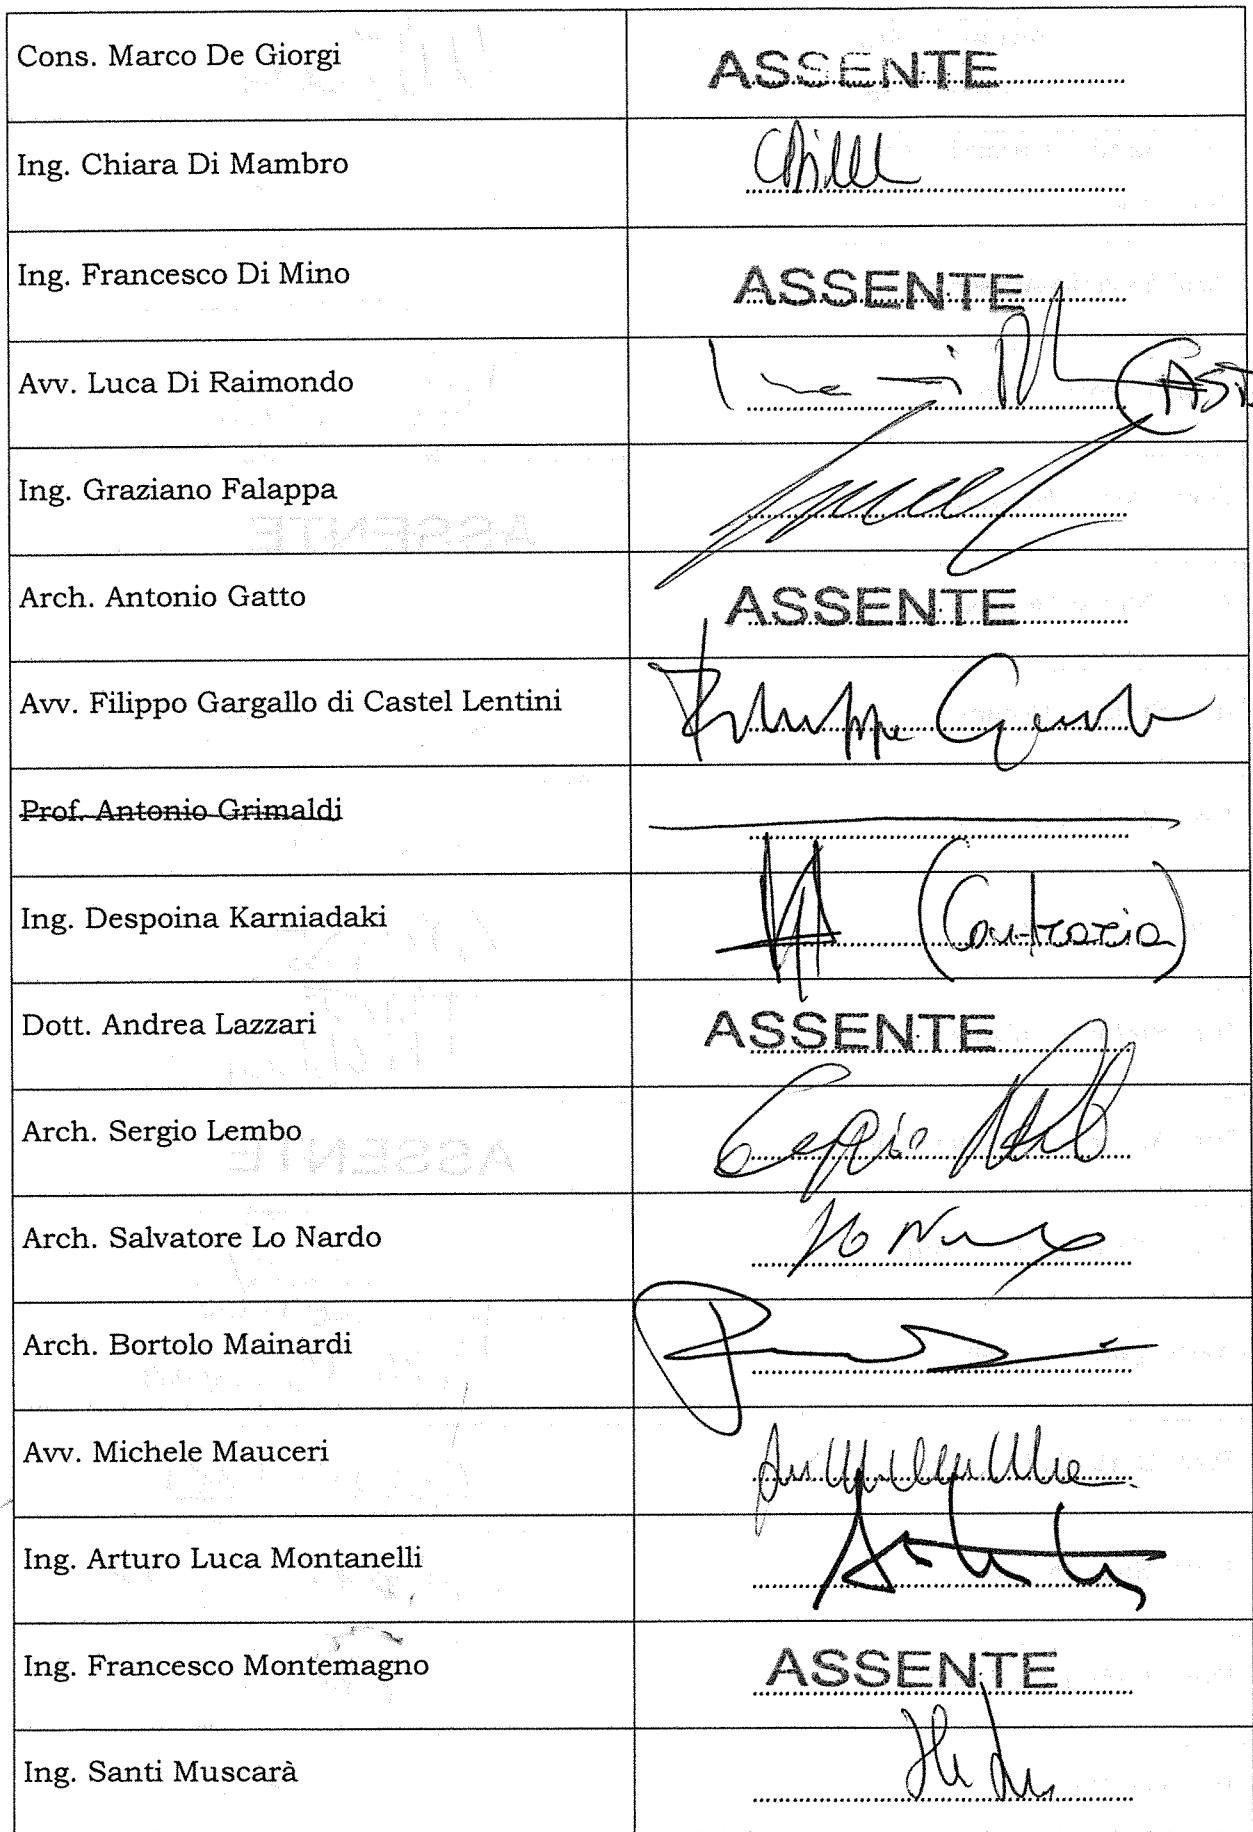 Cons. Marco De Giorgi
ASSENTE
Ing. Chiara Di Mambro
Ing. Francesco Di Mino
ASSENTE
Avv. Luca Di Raimondo
Ing. Graziano Falappa
Arch. Antonio Gatto
ASSENTE
Avv. Filippo Gargallo di Castel Lentini
Prof. Antonio Grimaldi
Ing. Despoina Karniadaki
(Contraria)
Dott. Andrea Lazzari
ASSENTE
Arch. Sergio Lembo
Arch. Salvatore Lo Nardo
Arch. Bortolo Mainardi
Avv. Michele Mauceri
Ing. Arturo Luca Montanelli
Ing. Francesco Montemagno
ASSENTE
Ing. Santi Muscarà